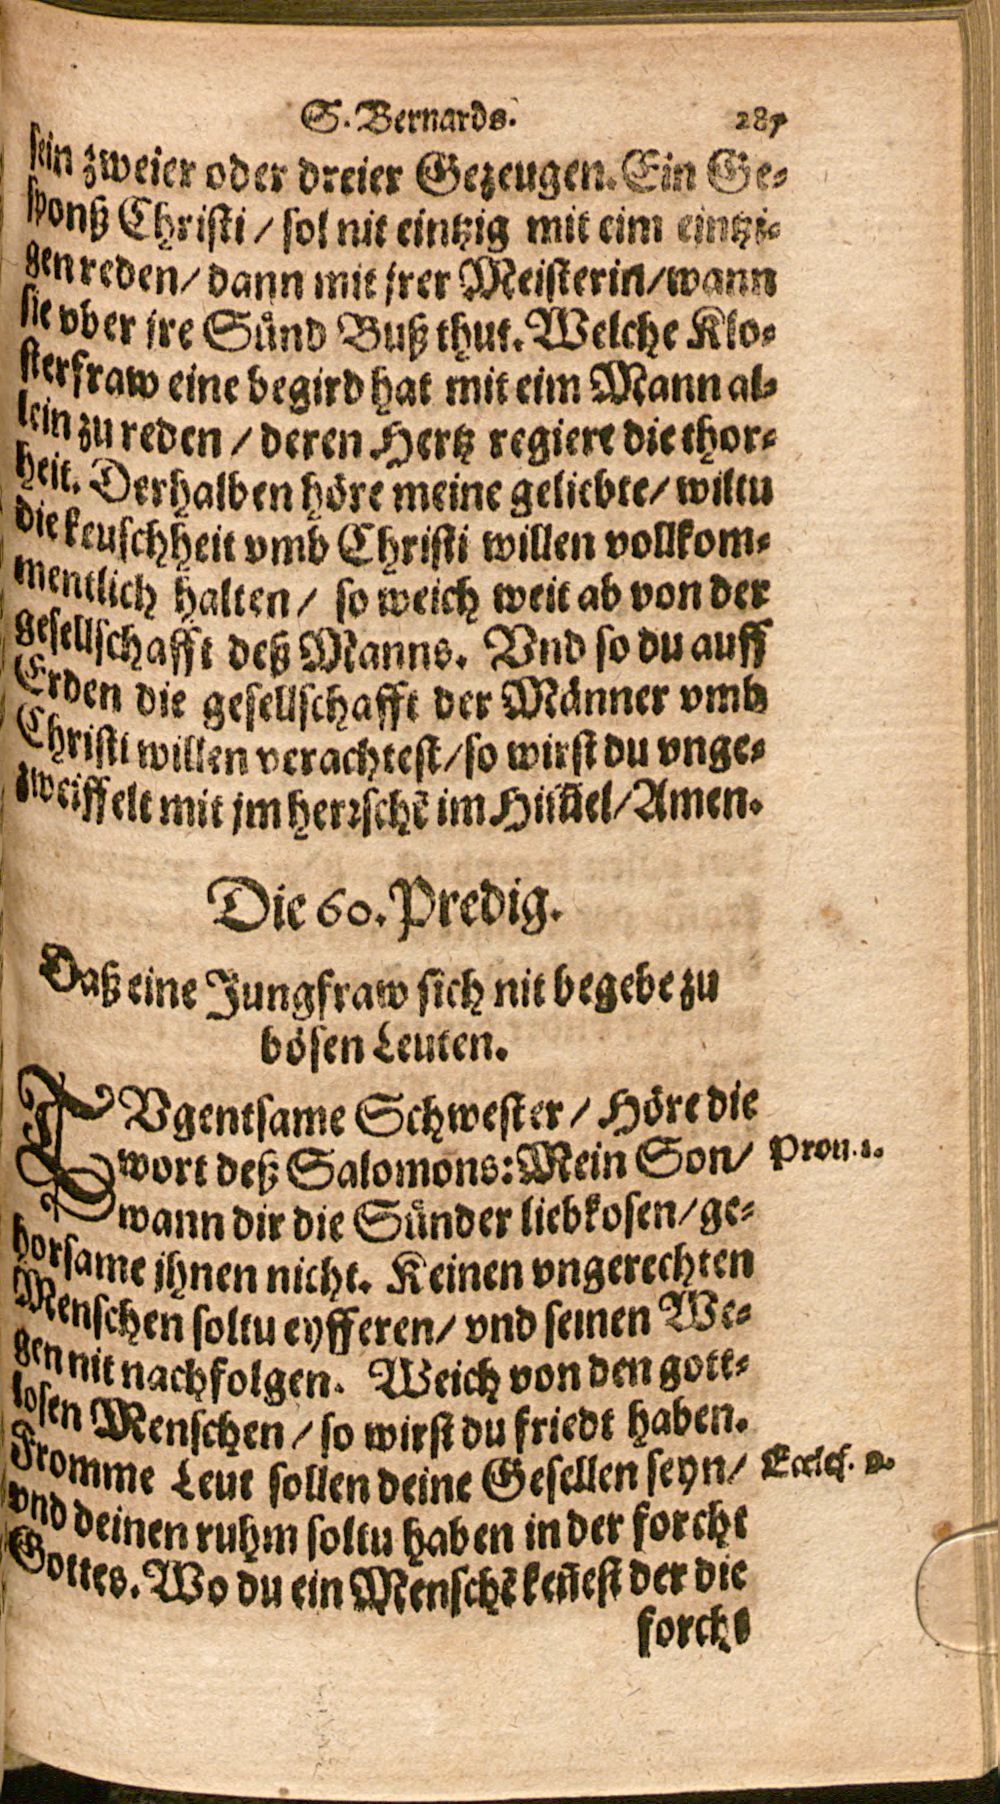 S. Bernards. 287
sein zweier oder dreier Gezeugen. Ein Ge-
sponß Christi / sol nit eintzig mit eim eintzi-
gen reden / dann mit jrer Meisterin / wann
sie vber jre Sünd Buß thut. Welche Klo-
sterfraw eine begird hat mit eim Mann al-
lein zu reden / deren Hertz regiert die thor-
heit. Derhalben höre meine geliebte / wiltu
die keuschheit vmb Christi willen vollkom-
mentlich halten / so weich weit ab von der
gesellschafft deß Manns. Vnd so du auff
Erden die gesellschafft der Männer vmb
Christi willen verachtest / so wirst du vnge-
zweiffelt mit jm herrschē im Him̄el / Amen.
Die 60. Predig.
Daß eine Jungfraw sich nit begebe zu
bösen Leuten.
TVgentsame Schwester / Höre die
wort deß Salomons: Mein Son / Prou. 1.
wann dir die Sünder liebkosen / ge-
horsame jhnen nicht. Keinen vngerechten
Menschen soltu eyfferen / vnd seinen We-
gen nit nachfolgen. Weich von den gott-
losen Menschen / so wirst du friedt haben.
Fromme Leut sollen deine Gesellen seyn / Eccles. 9.
vnd deinen ruhm soltu haben in der forcht
Gottes. Wo du ein Menschē ken̄est der die
forcht